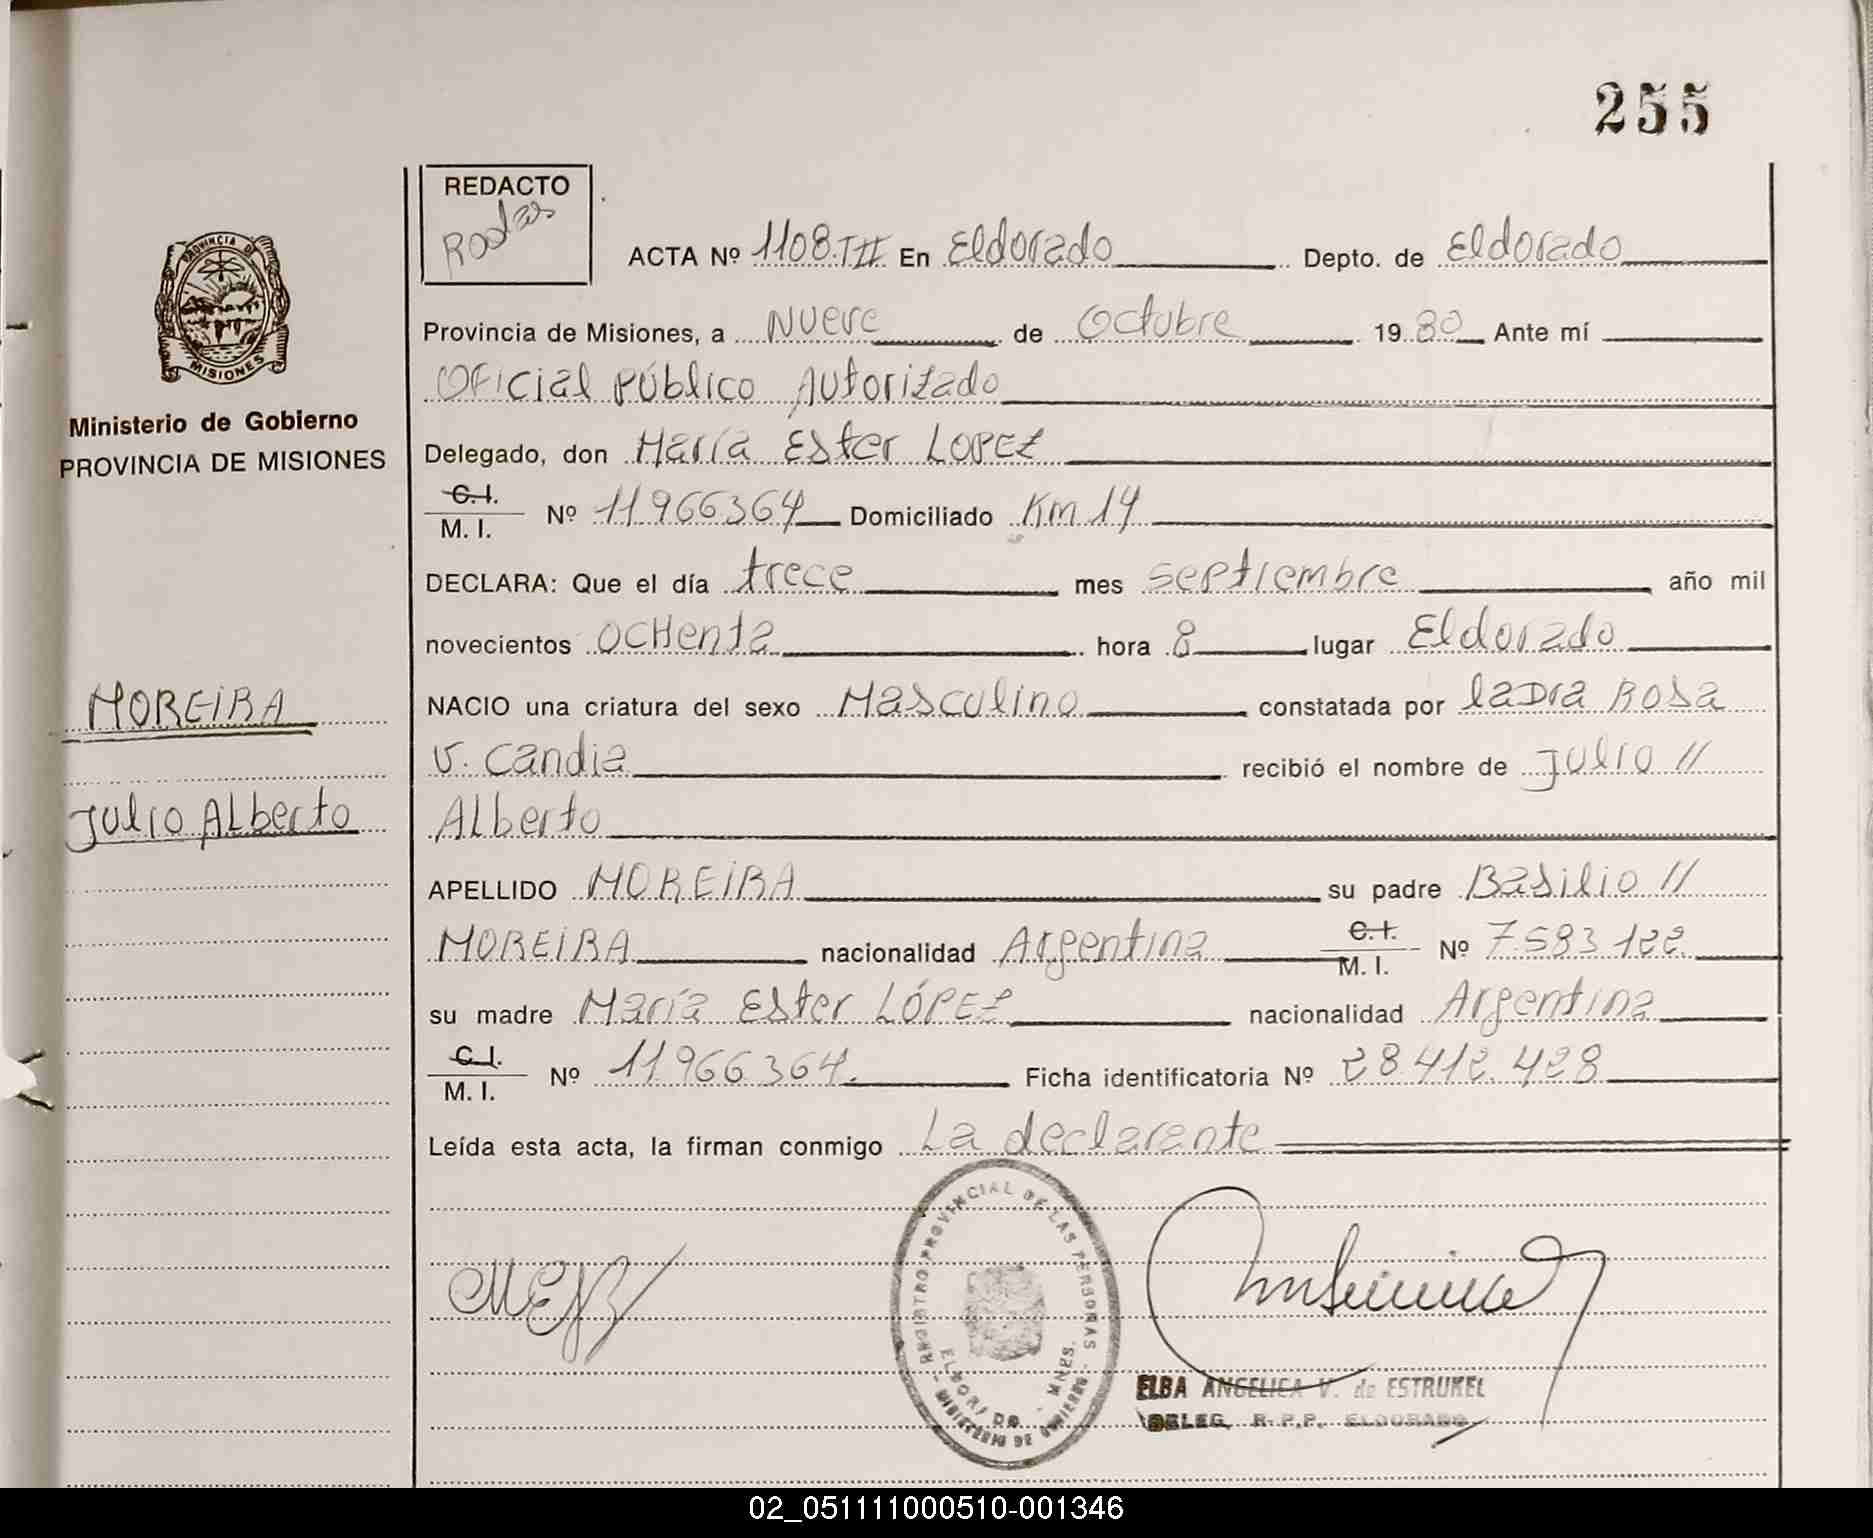 255
REDACTO
Rodas
ACTA Nº 1108.TII En Eldorado Depto. de Eldorado
PROVINCIA DE
MISIONES
Provincia de Misiones, a Nueve de Octubre 19 80 Ante mí
Oficial Público Autorizado
Ministerio de Gobierno
PROVINCIA DE MISIONES
Delegado, don María Ester LOPEZ
C.I.
M. I. Nº 11966364 Domiciliado Km 14
DECLARA: Que el día trece mes septiembre año mil
novecientos ocHenta hora 8 lugar Eldorado
MOREIRA
NACIO una criatura del sexo Masculino constatada por la Dra Rosa
V. Candia recibió el nombre de Julio //
Julio Alberto
Alberto
APELLIDO MOREIRA su padre Basilio //
MOREIRA nacionalidad Argentina C.I. M. I. Nº 7.583.122
su madre María Ester LÓPEZ nacionalidad Argentina
C.I.
M. I. Nº 11.966.364. Ficha identificatoria Nº 28.412.428
Leída esta acta, la firman conmigo La declarante
REGISTRO PROVINCIAL DE LAS PERSONAS
ELDORADO - MNES.
MINISTERIO DE GOBIERNO
ELBA ANGELICA V. de ESTRUKEL
DELEG. R.P.P. ELDORADO
02_051111000510-001346